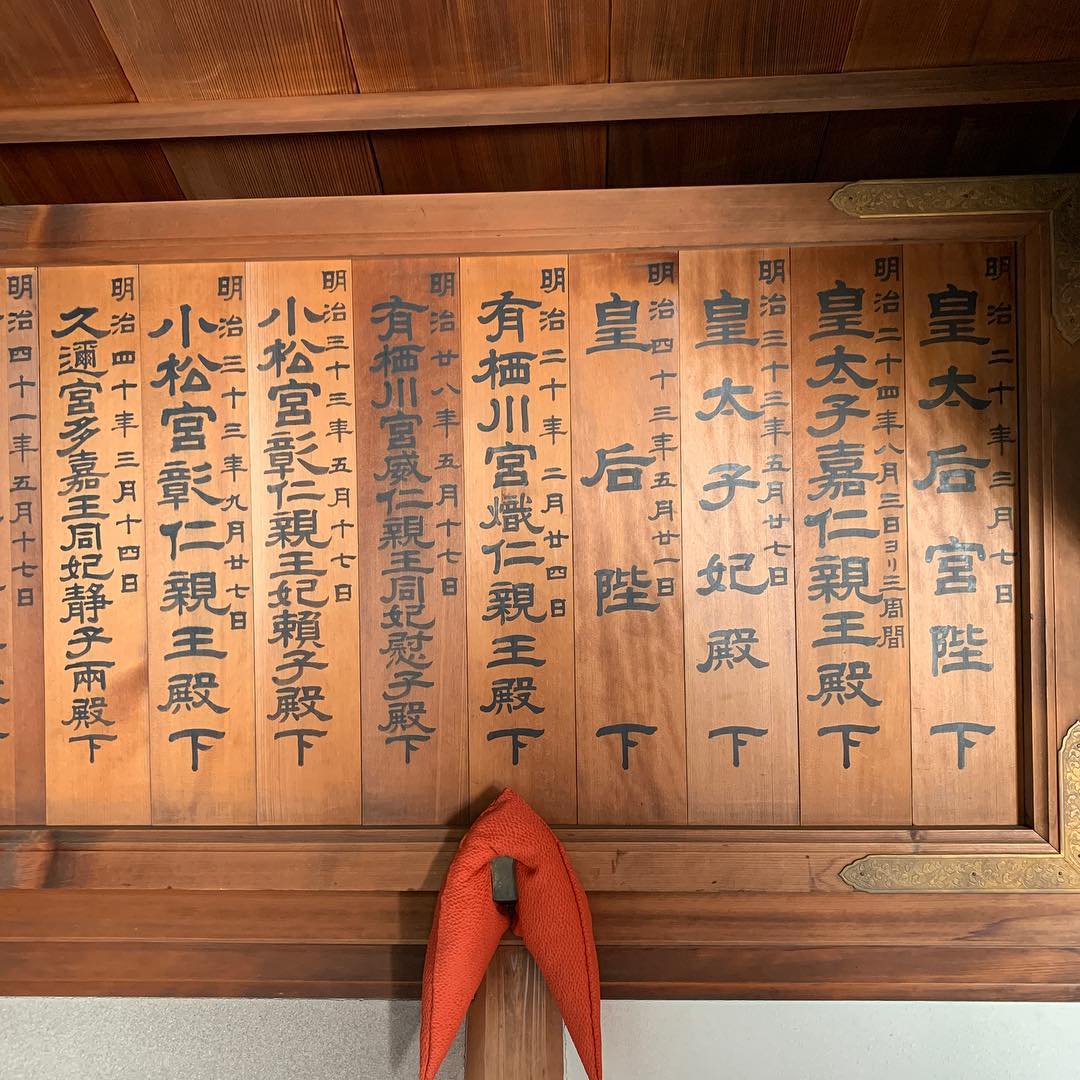 明治二十年三月七日
皇太后宮陛下
明治二十四年八月三日ヨリ三周間
皇太子嘉仁親王殿下
明治三十三年五月廿七日
皇太子妃殿下
明治四十三年五月廿一日
皇后陛下
明治二十年二月廿四日
有栖川宮熾仁親王殿下
明治廿八年五月十七日
有栖川宮威仁親王同妃慰子殿下
明治三十三年五月十七日
小松宮彰仁親王妃頼子殿下
明治三十三年九月廿七日
小松宮彰仁親王殿下
明治四十年三月十四日
久邇宮多嘉王同妃静子両殿下
明治四十一年五月十七日